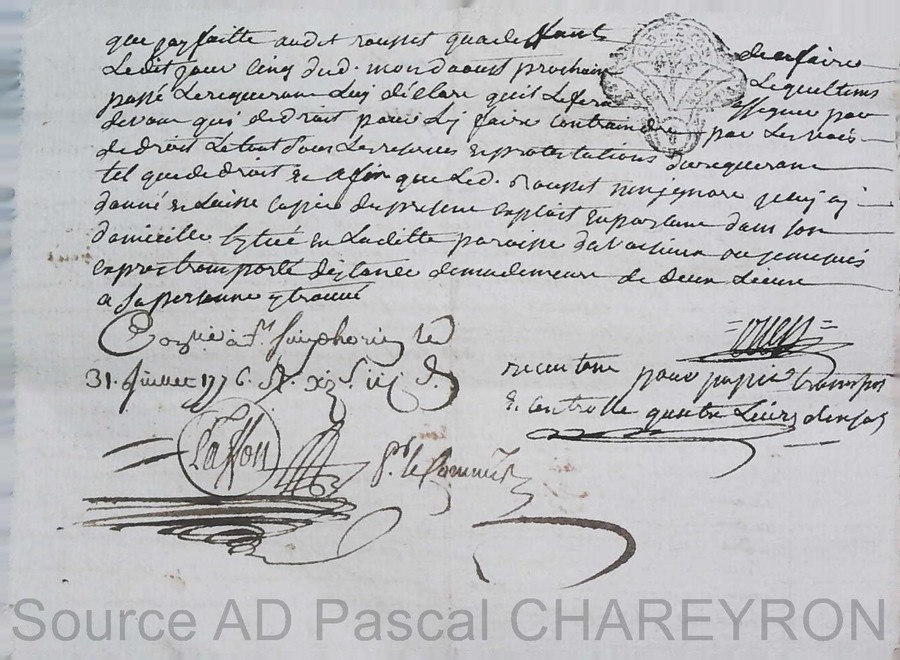 que jay faitte audit rousset qua deffaut de ce faire
Ledit jour cinq dud. mois daoust prochain Lequel tems
passé Le requerant Luy déclare quil Le fera assigner par
devant qui de droit pour Ly faire contraindre par Les voies
de droit Le tout sous Les reserves et protestations du requerant
tel que de droit et afin que Led. rousset nen jgnore je luy ay
donné et Laissé copie du présent exploit en parlant dans son
domicille scitué en Laditte paroisse da ou je me suis
exprès transporté distance de ma demeure de deux Lieues
a sa personne y trouvé
Controllé a St. Simphorien le
31. Juillet 1776. R.
recu tant pour papier transport
& controlle quatre Livres dix sols
pr. le Commis
Source AD Pascal CHAREYRON